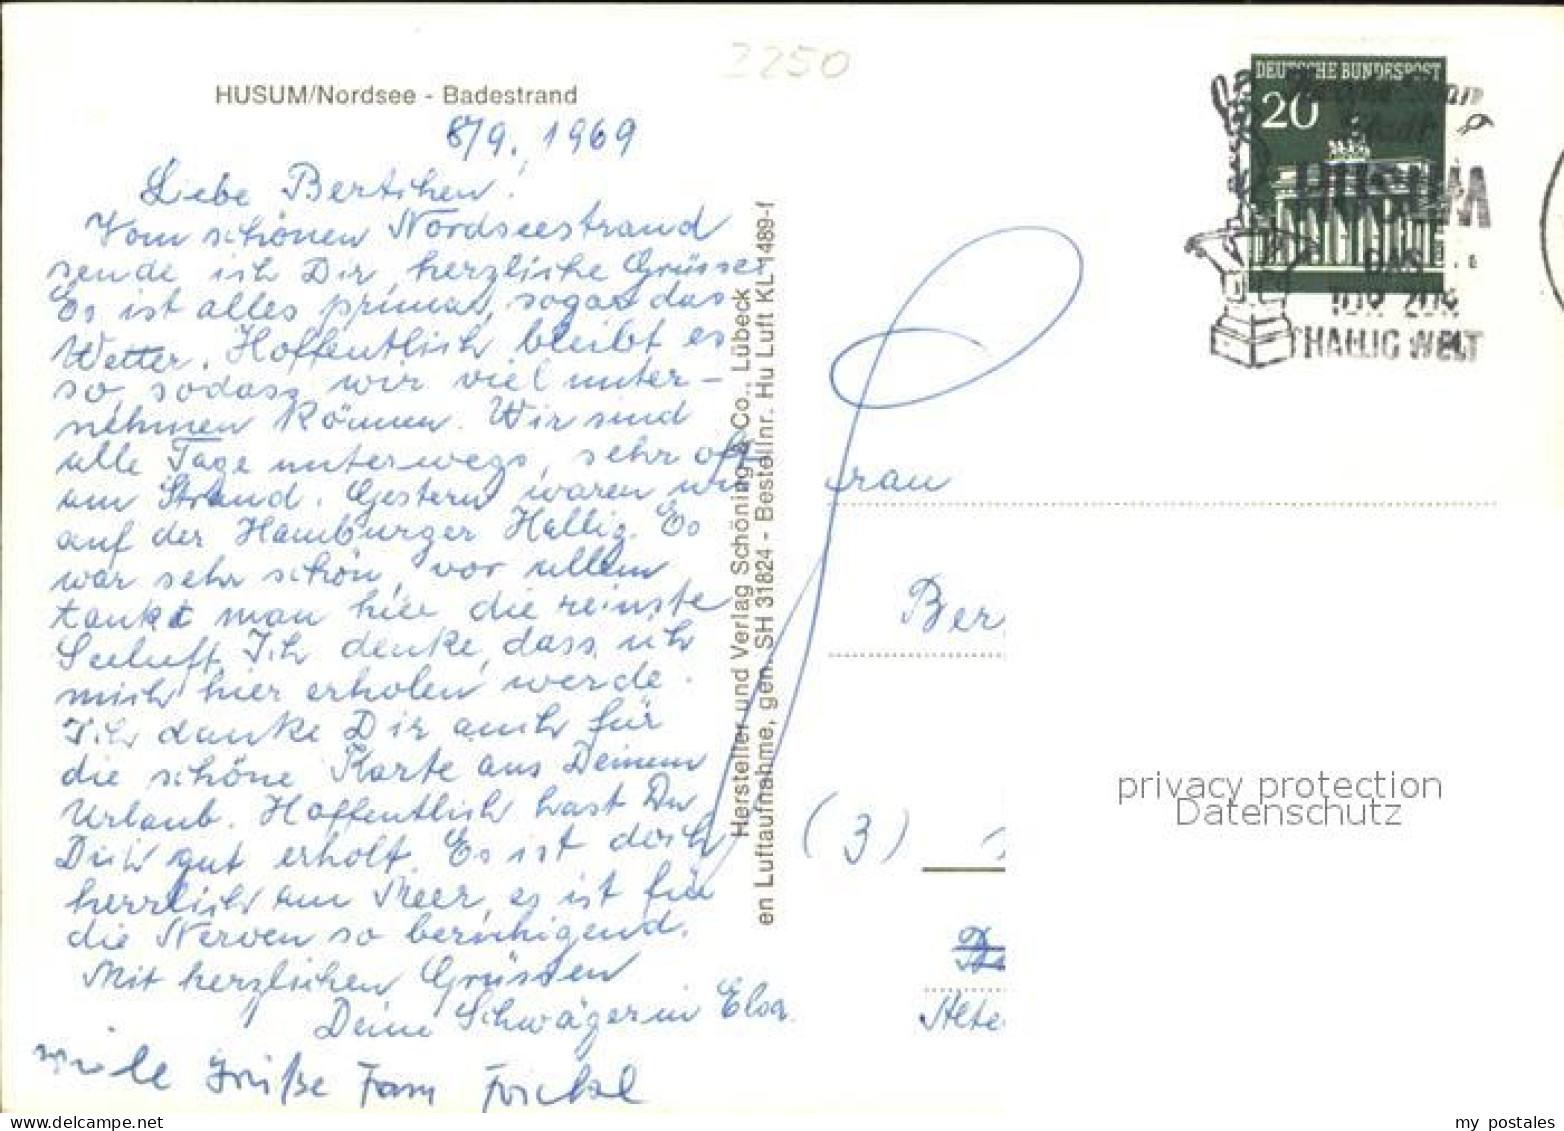 2250
HUSUM/Nordsee - Badestrand
8/9. 1969
Liebe Bertchen!
Vom schönen Nordseestrand
sende ich Dir herzliche Grüsse.
Es ist alles prima, sogar das
Wetter. Hoffentlich bleibt es
so, sodass wir viel unter-
nehmen können. Wir sind
alle Tage unterwegs, sehr oft
am Strand. Gestern waren wir
auf der Hamburger Hallig. Es
war sehr schön, vor allem
tankt man hier die reinste
Seeluft. Ich denke, dass ich
mich hier erholen werde.
Ich danke Dir auch für
die schöne Karte aus Deinem
Urlaub. Hoffentlich hast Du
Dich gut erholt. Es ist doch
herrlich am Meer, es ist für
die Nerven so beruhigend.
Mit herzlichen Grüssen
Deine Schwägerin Elsa.
viele Grüße Fam
Hersteller und Verlag Schöning & Co., Lübeck
en Luftaufnahme, gen. SH 31824 - Bestellnr. Hu Luft KL 1489-f
DEUTSCHE BUNDESPOST
20
HUSUM
DAS
TOR ZUR
HALLIG WELT
Frau
Ber
(3)
Alte
privacy protection
Datenschutz
my postales